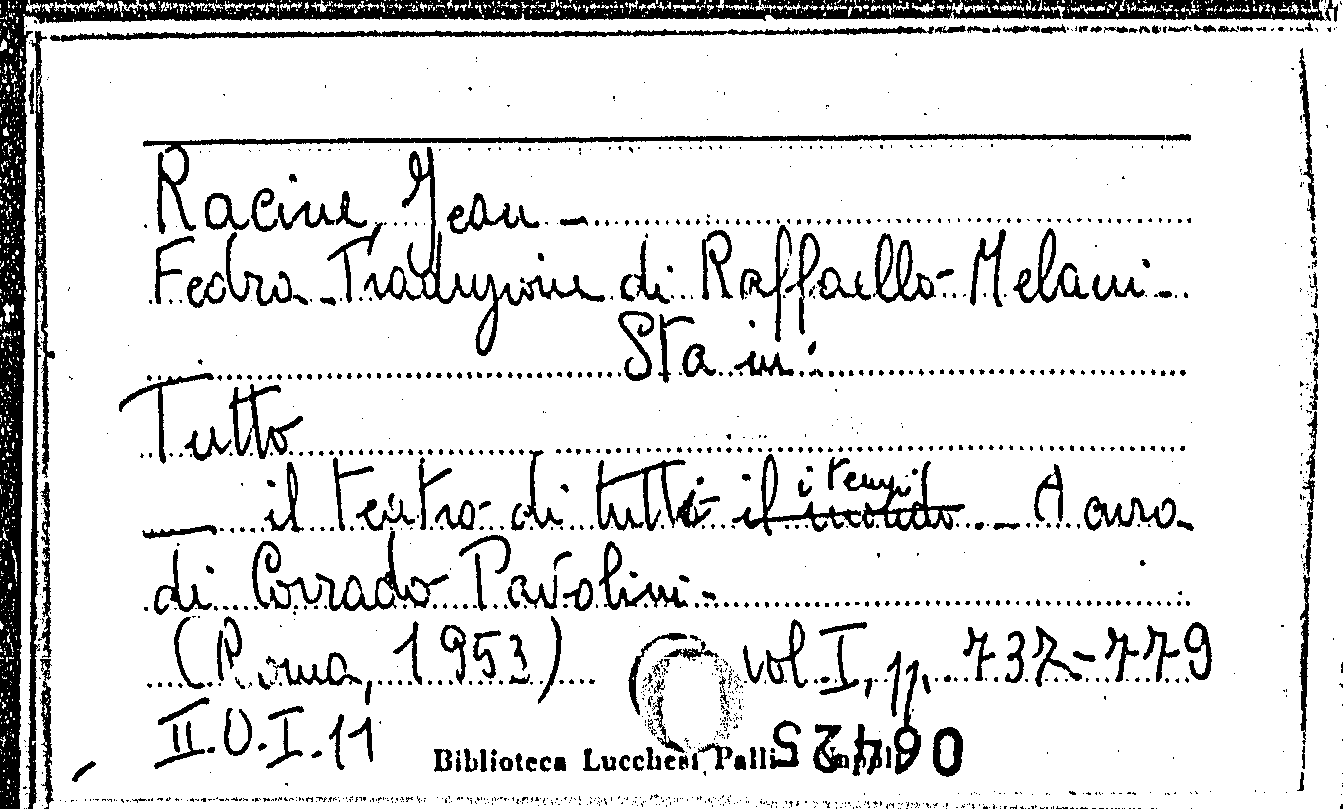 Racine, Jean -
Fedra - Traduzione di Raffaello Melani -
Sta in:
Tutto
i tempi
__ il teatro di tutti il mondo. - A cura
di Corrado Pavolini -
(Roma, 1953) vol. I, pp. 737-779
II.O.I.11
Biblioteca Lucchesi Palli Napoli
06425